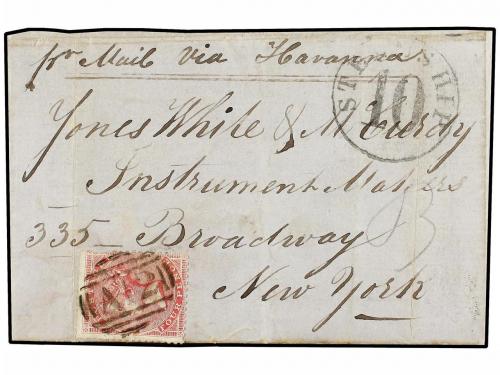 pr Mail via Havanna
STEAMSHIP
10
Jones White & McCurdy
Instrument Makers
335 Broadway
New York
FOUR PENCE